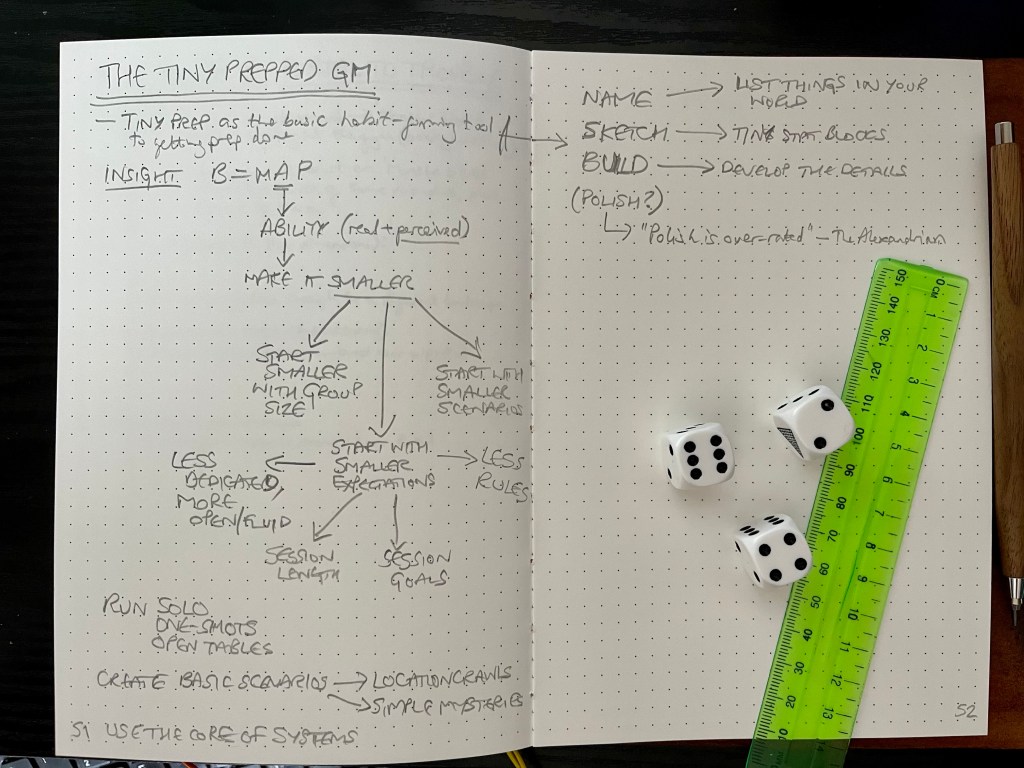 THE TINY PREPPED GM
— TINY PREP as the basic habit-forming tool
to getting prep done
INSIGHT B=MAP
ABILITY (real + perceived)
MAKE IT SMALLER
START
SMALLER
WITH GROUP
SIZE
START WITH
SMALLER
SCENARIOS
START WITH
SMALLER
EXPECTATIONS
LESS
DEDICATED,
MORE
OPEN/FLUID
LESS
RULES
SESSION
LENGTH
SESSION
GOALS
RUN SOLO
ONE SHOTS
OPEN TABLES
CREATE BASIC SCENARIOS → LOCATION CRAWLS
→ SIMPLE MYSTERIES
51 USE THE CORE OF SYSTEMS
NAME → LIST THINGS IN YOUR
WORLD
SKETCH → TINY STAT BLOCKS
BUILD → DEVELOP THE DETAILS
(POLISH?)
"Polish is over-rated" – The Alexandrian
52
150
140
130
120
110
100
90
80
70
60
50
40
30
20
10
0 CM
1
2
3
4
5
6
7
8
9
10
11
12
13